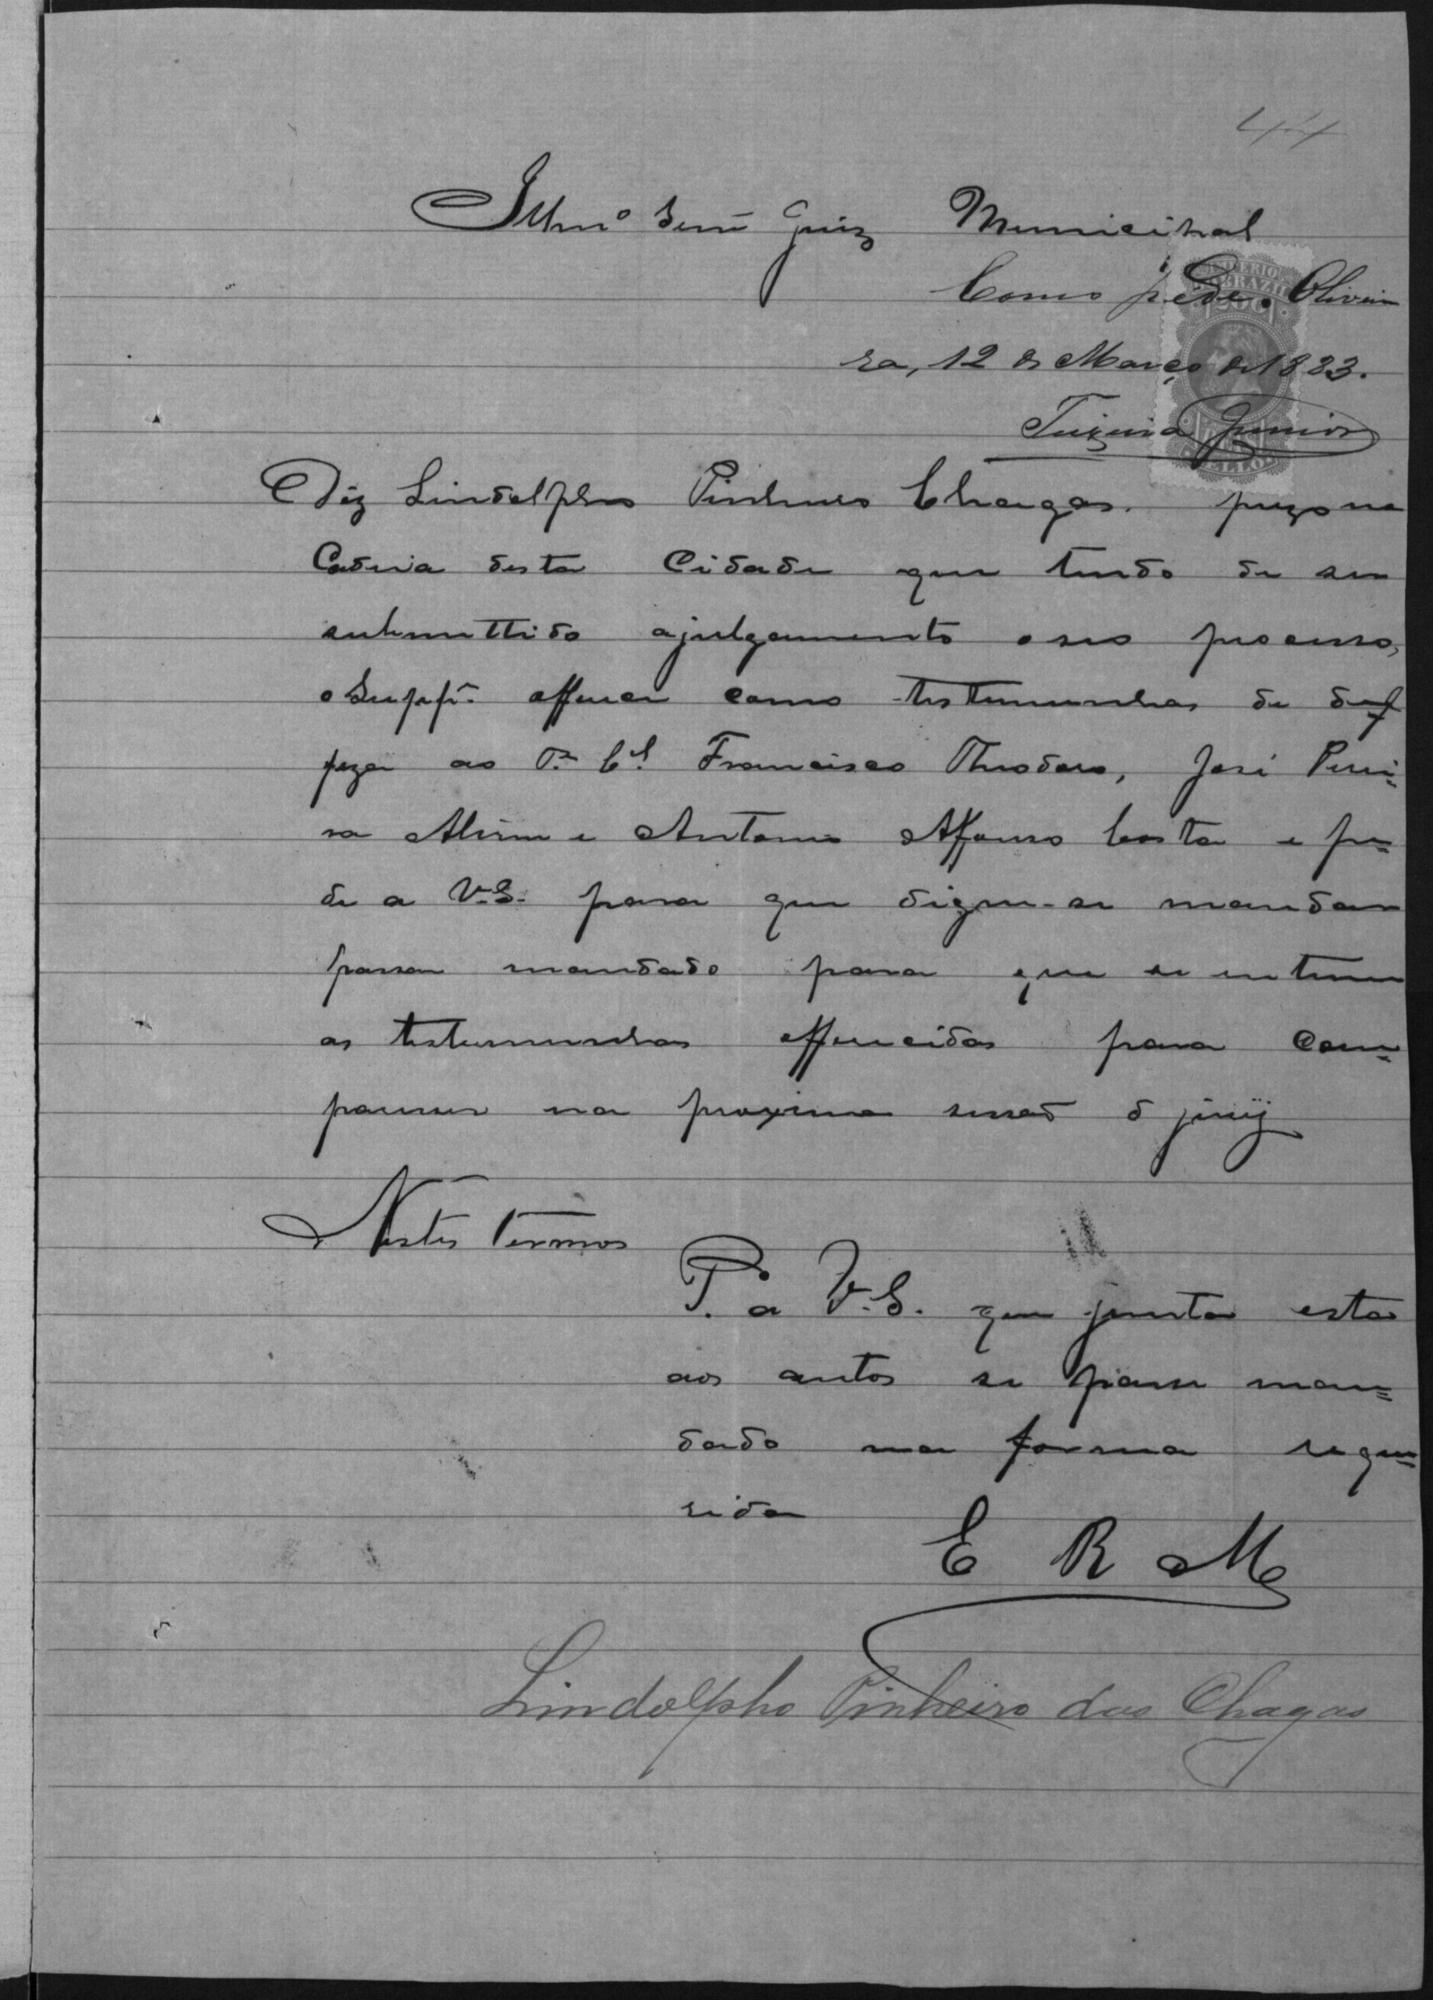 44
Illmº Senr Juiz Municipal
Como pede. Olivei
ra, 12 de Março de 1883.
Teixeira Junior
IMPERIO
BRAZIL
200
Diz Lindolpho Pinheiro Chagas. prezo na
Cadeia desta Cidade que tendo de ser
submettido a julgamento o seo processo,
o Suppe. offerece como testemunhas de def
feza ao Te. Cel. Francisco Theodoro, José Perei=
ra Alvim e Antonio Affonso Costa e pe=
de a V.S. para que digne-se mandar
passar mandado para que se intime
as testemunhas offerecidas para com=
parecer na proxima sessaõ d jury
Nestes termos
P. a V.S. que junta esta
aos autos se passe man=
dado na forma reque=
rida
E R Mce
Lindolpho Pinheiro das Chagas